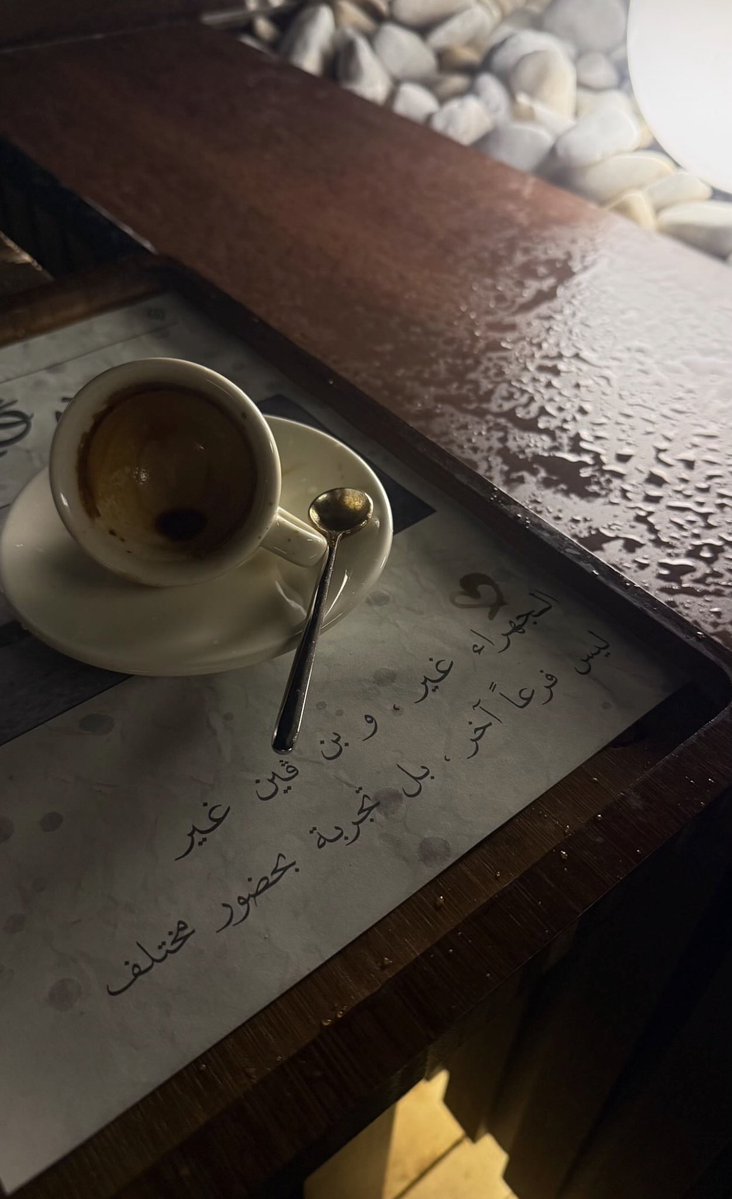 الجهراء غير ، و بن ڤين غير
ليس فرعاً آخر ، بل تجربة بحضور مختلف